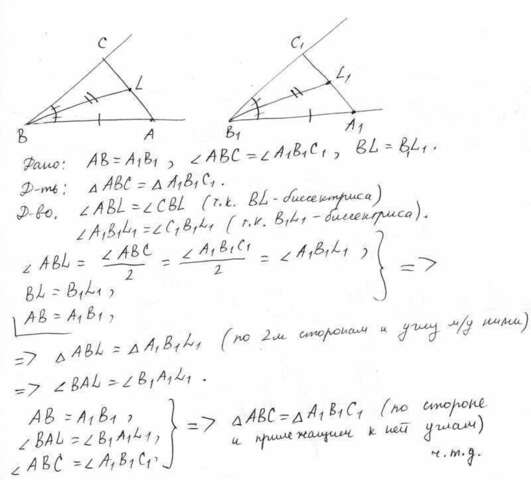 C
L
B
A
C₁
L₁
B₁
A₁
Дано: AB = A₁B₁, ∠ABC = ∠A₁B₁C₁, BL = B₁L₁.
Д-ть: △ABC = △A₁B₁C₁.
Д-во. ∠ABL = ∠CBL (т.к. BL - биссектриса)
∠A₁B₁L₁ = ∠C₁B₁L₁ (т.к. B₁L₁ - биссектриса).
∠ABL = ∠ABC/2 = ∠A₁B₁C₁/2 = ∠A₁B₁L₁,
BL = B₁L₁,
AB = A₁B₁,
} =>
=> △ABL = △A₁B₁L₁ (по 2м сторонам и углу м/у ними)
=> ∠BAL = ∠B₁A₁L₁.
AB = A₁B₁,
∠BAL = ∠B₁A₁L₁,
∠ABC = ∠A₁B₁C₁.
} => △ABC = △A₁B₁C₁ (по стороне
и прилежащим к ней углам)
ч.т.д.